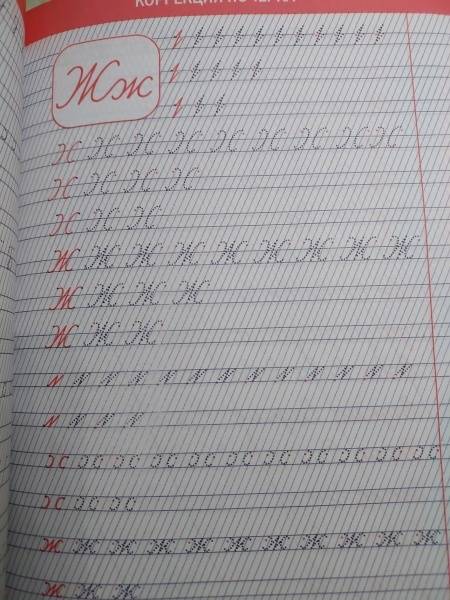 КОРРЕКЦИЯ ПОЧЕРКА
Жж
Ж Ж Ж Ж Ж Ж Ж Ж Ж
Ж Ж Ж Ж
Ж Ж Ж
ж ж ж ж ж ж ж ж ж ж ж
ж ж ж